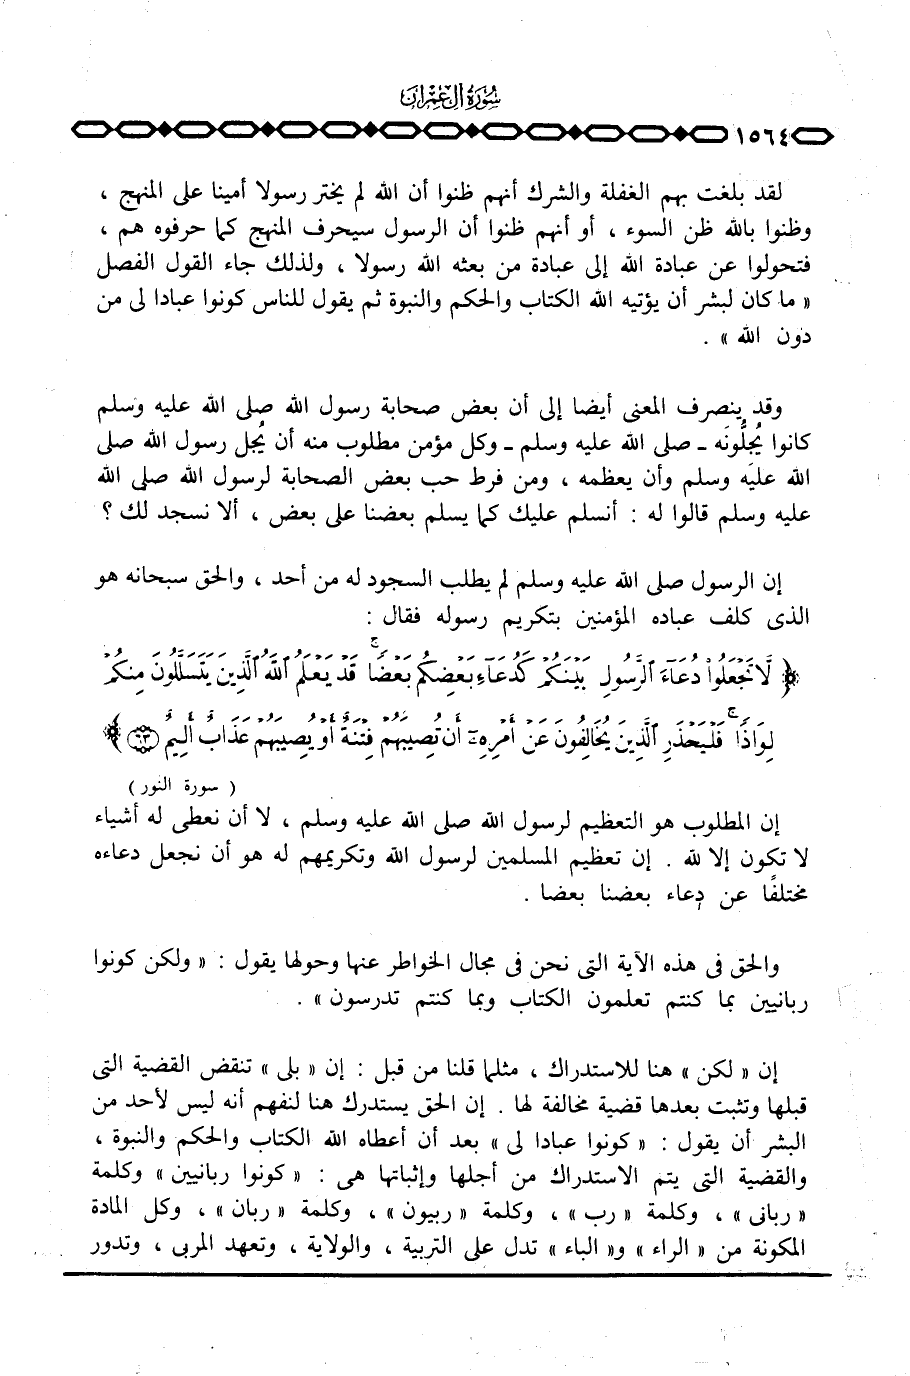 سورة آل عمران
١٥٦٤
لقد بلغت بهم الغفلة والشرك أنهم ظنوا أن الله لم يختر رسولا أمينا على المنهج ،
وظنوا بالله ظن السوء ، أو أنهم ظنوا أن الرسول سيحرف المنهج كما حرفوه هم ،
فتحولوا عن عبادة الله إلى عبادة من بعثه الله رسولا ، ولذلك جاء القول الفصل
« ما كان لبشر أن يؤتيه الله الكتاب والحكم والنبوة ثم يقول للناس كونوا عبادا لى من
دون الله » .
وقد ينصرف المعنى أيضا إلى أن بعض صحابة رسول الله صلى الله عليه وسلم
كانوا يُجُلُّونَه ـ صلى الله عليه وسلم ـ وكل مؤمن مطلوب منه أن يُجل رسول الله صلى
الله عليه وسلم وأن يعظمه ، ومن فرط حب بعض الصحابة لرسول الله صلى الله
عليه وسلم قالوا له : أنسلم عليك كما يسلم بعضنا على بعض ، ألا نسجد لك ؟
إن الرسول صلى الله عليه وسلم لم يطلب السجود له من أحد ، والحق سبحانه هو
الذى كلف عباده المؤمنين بتكريم رسوله فقال :
﴿ لَّا تَجْعَلُوا۟ دُعَآءَ ٱلرَّسُولِ بَيْنَكُمْ كَدُعَآءِ بَعْضِكُم بَعْضًا ۚ قَدْ يَعْلَمُ ٱللَّهُ ٱلَّذِينَ يَتَسَلَّلُونَ مِنكُمْ
لِوَاذًا ۚ فَلْيَحْذَرِ ٱلَّذِينَ يُخَالِفُونَ عَنْ أَمْرِهِۦٓ أَن تُصِيبَهُمْ فِتْنَةٌ أَوْ يُصِيبَهُمْ عَذَابٌ أَلِيمٌ ٦٣ ﴾
( سورة النور )
إن المطلوب هو التعظيم لرسول الله صلى الله عليه وسلم ، لا أن نعطى له أشياء
لا تكون إلا لله . إن تعظيم المسلمين لرسول الله وتكريمهم له هو أن نجعل دعاءه
مختلفًا عن دعاء بعضنا بعضا .
والحق فى هذه الآية التى نحن فى مجال الخواطر عنها وحولها يقول : « ولكن كونوا
ربانيين بما كنتم تعلمون الكتاب وبما كنتم تدرسون » .
إن « لكن » هنا للاستدراك ، مثلما قلنا من قبل : إن « بلى » تنقض القضية التى
قبلها وتثبت بعدها قضية مخالفة لها . إن الحق يستدرك هنا لنفهم أنه ليس لأحد من
البشر أن يقول : « كونوا عبادا لى » بعد أن أعطاه الله الكتاب والحكم والنبوة ،
والقضية التى يتم الاستدراك من أجلها وإثباتها هى : « كونوا ربانيين » وكلمة
« ربانى » ، وكلمة « رب » ، وكلمة « ربيون » ، وكلمة « ربان » ، وكل المادة
المكونة من « الراء » و« الباء » تدل على التربية ، والولاية ، وتعهد المربى ، وتدور